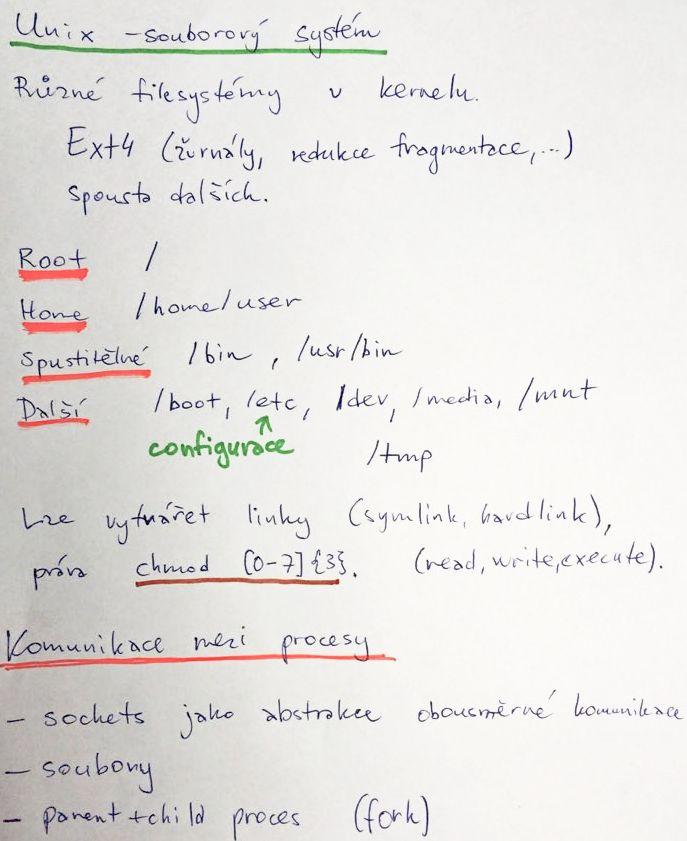 Unix - souborový systém
Různé filesystémy v kernelu.
Ext4 (žurnály, redukce fragmentace,...)
Spousta dalších.
Root /
Home /home/user
Spustitělné /bin , /usr/bin
Další /boot, /etc, /dev, /media, /mnt
configurace /tmp
Lze vytvářet linky (symlink, hardlink),
práva chmod [0-7]{3}. (read, write, execute).
Komunikace mezi procesy
- sockets jako abstrakce obousměrné komunikace
- soubory
- parent+child proces (fork)